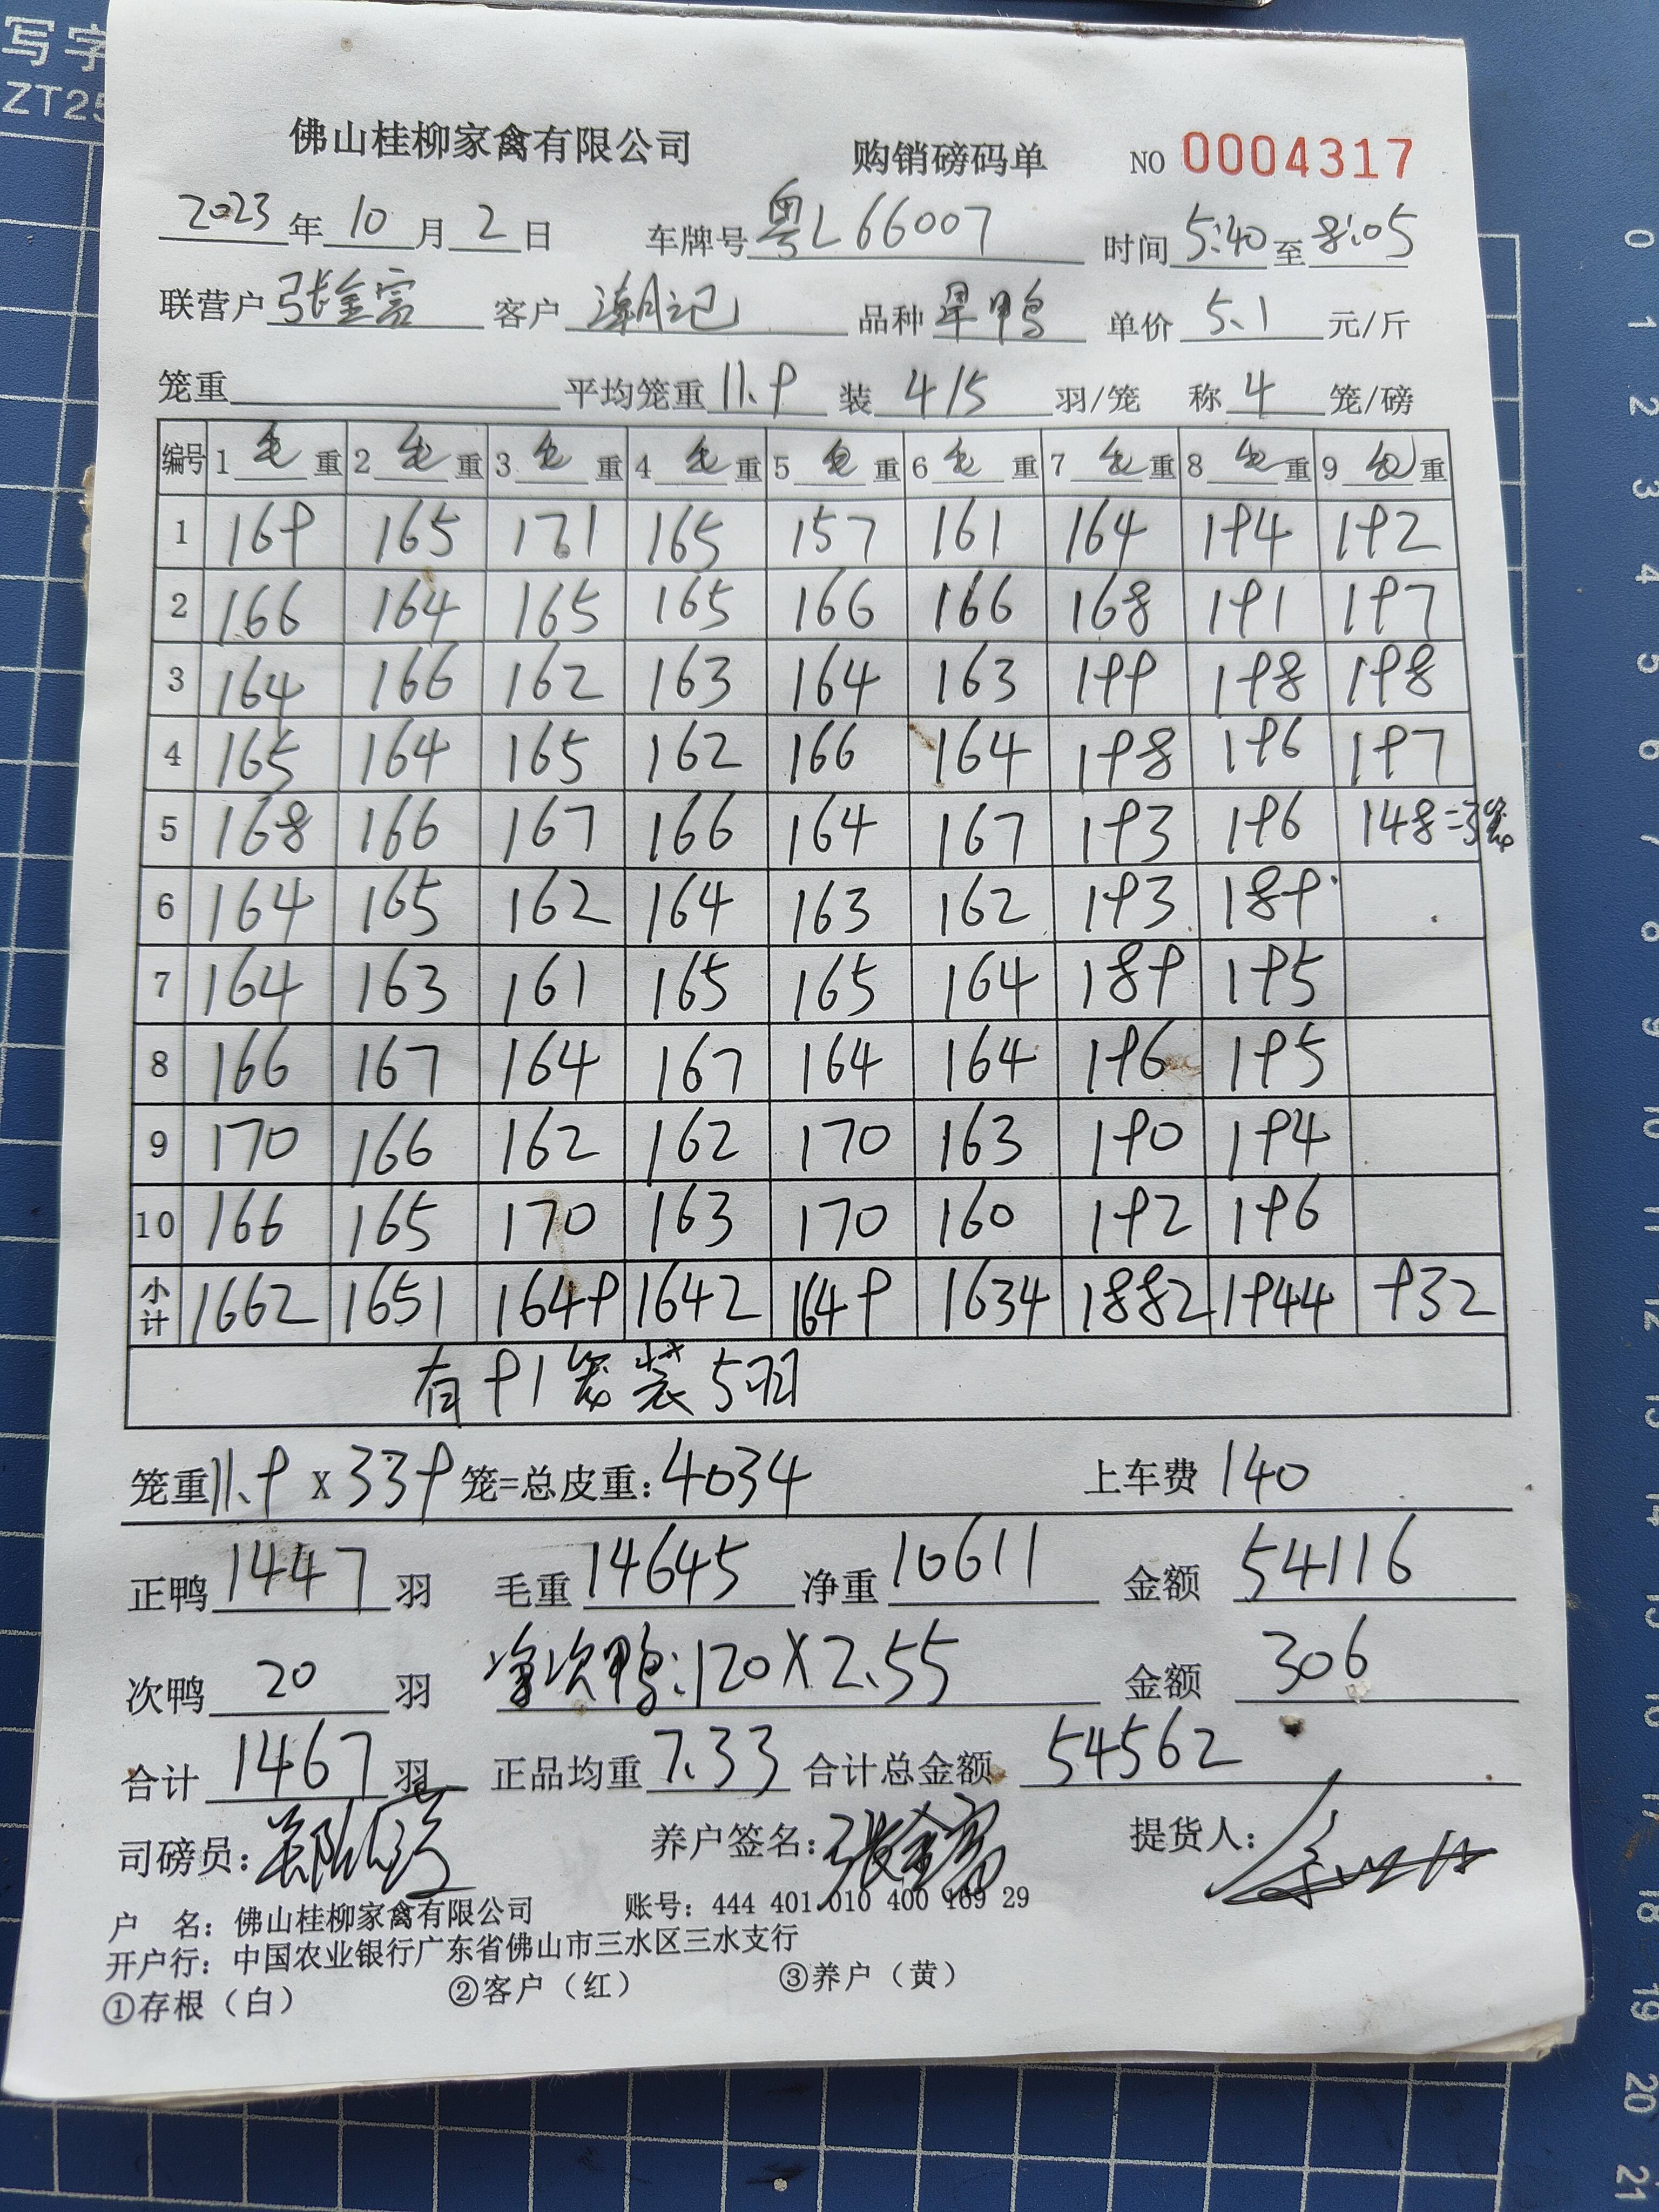 写字
ZT25
佛山桂柳家禽有限公司 购销磅码单 NO 0004317
2023年10月2日 车牌号粤L66007 时间5:40至8:05
联营户张金富 客户潮记 品种旱鸭 单价5.1元/斤
笼重 平均笼重11.9 装4/5羽/笼 称4笼/磅
编号 1毛重 2毛重 3毛重 4毛重 5毛重 6毛重 7毛重 8毛重 9毛重
1 169 165 171 165 157 161 164 194 192
2 166 164 165 165 166 166 168 191 197
3 164 166 162 163 164 163 199 198 198
4 165 164 165 162 166 164 198 196 197
5 168 166 167 166 164 167 193 196 148=3笼
6 164 165 162 164 163 162 193 189
7 164 163 161 165 165 164 189 195
8 166 167 164 167 164 164 196 195
9 170 166 162 162 170 163 190 194
10 166 165 170 163 170 160 192 196
小计 1662 1651 1649 1642 1649 1634 1882 1944 932
有91笼装5羽
笼重11.9x339笼=总皮重:4034 上车费140
正鸭1447羽 毛重14645 净重10611 金额54116
次鸭20羽 净次鸭:120X2.55 金额306
合计1467羽 正品均重7.33 合计总金额54562
司磅员: 养户签名:张金富 提货人:
户 名:佛山桂柳家禽有限公司 账号:444 401 010 400 169 29
开户行:中国农业银行广东省佛山市三水区三水支行
①存根(白) ②客户(红) ③养户(黄)
0 1 2 3 4 5 6 7 8 9 10 11 12 13 14 15 16 17 18 19 20 21